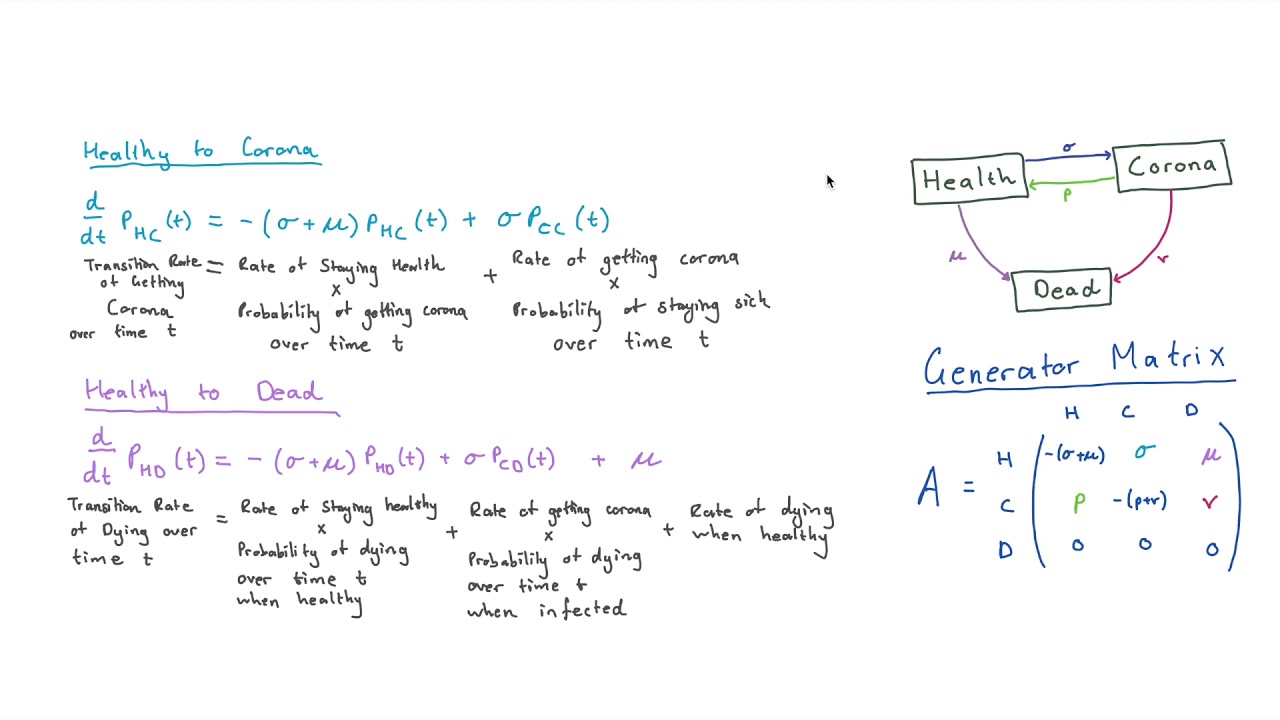 Healthy to Corona
d/dt P_HC(t) = -(σ+μ) P_HC(t) + σ P_CC(t)
Transition Rate of Getting Corona over time t = Rate of Staying Health x Probability of getting corona over time t + Rate of getting corona x Probability of staying sick over time t
Healthy to Dead
d/dt P_HD(t) = -(σ+μ) P_HD(t) + σ P_CD(t) + μ
Transition Rate of Dying over time t = Rate of Staying healthy x Probability of dying over time t when healthy + Rate of getting corona x Probability of dying over time t when infected + Rate of dying when healthy
Health σ Corona
ρ
μ ν
Dead
Generator Matrix
H C D
H -(σ+μ) σ μ
A = C ρ -(ρ+ν) ν
D 0 0 0